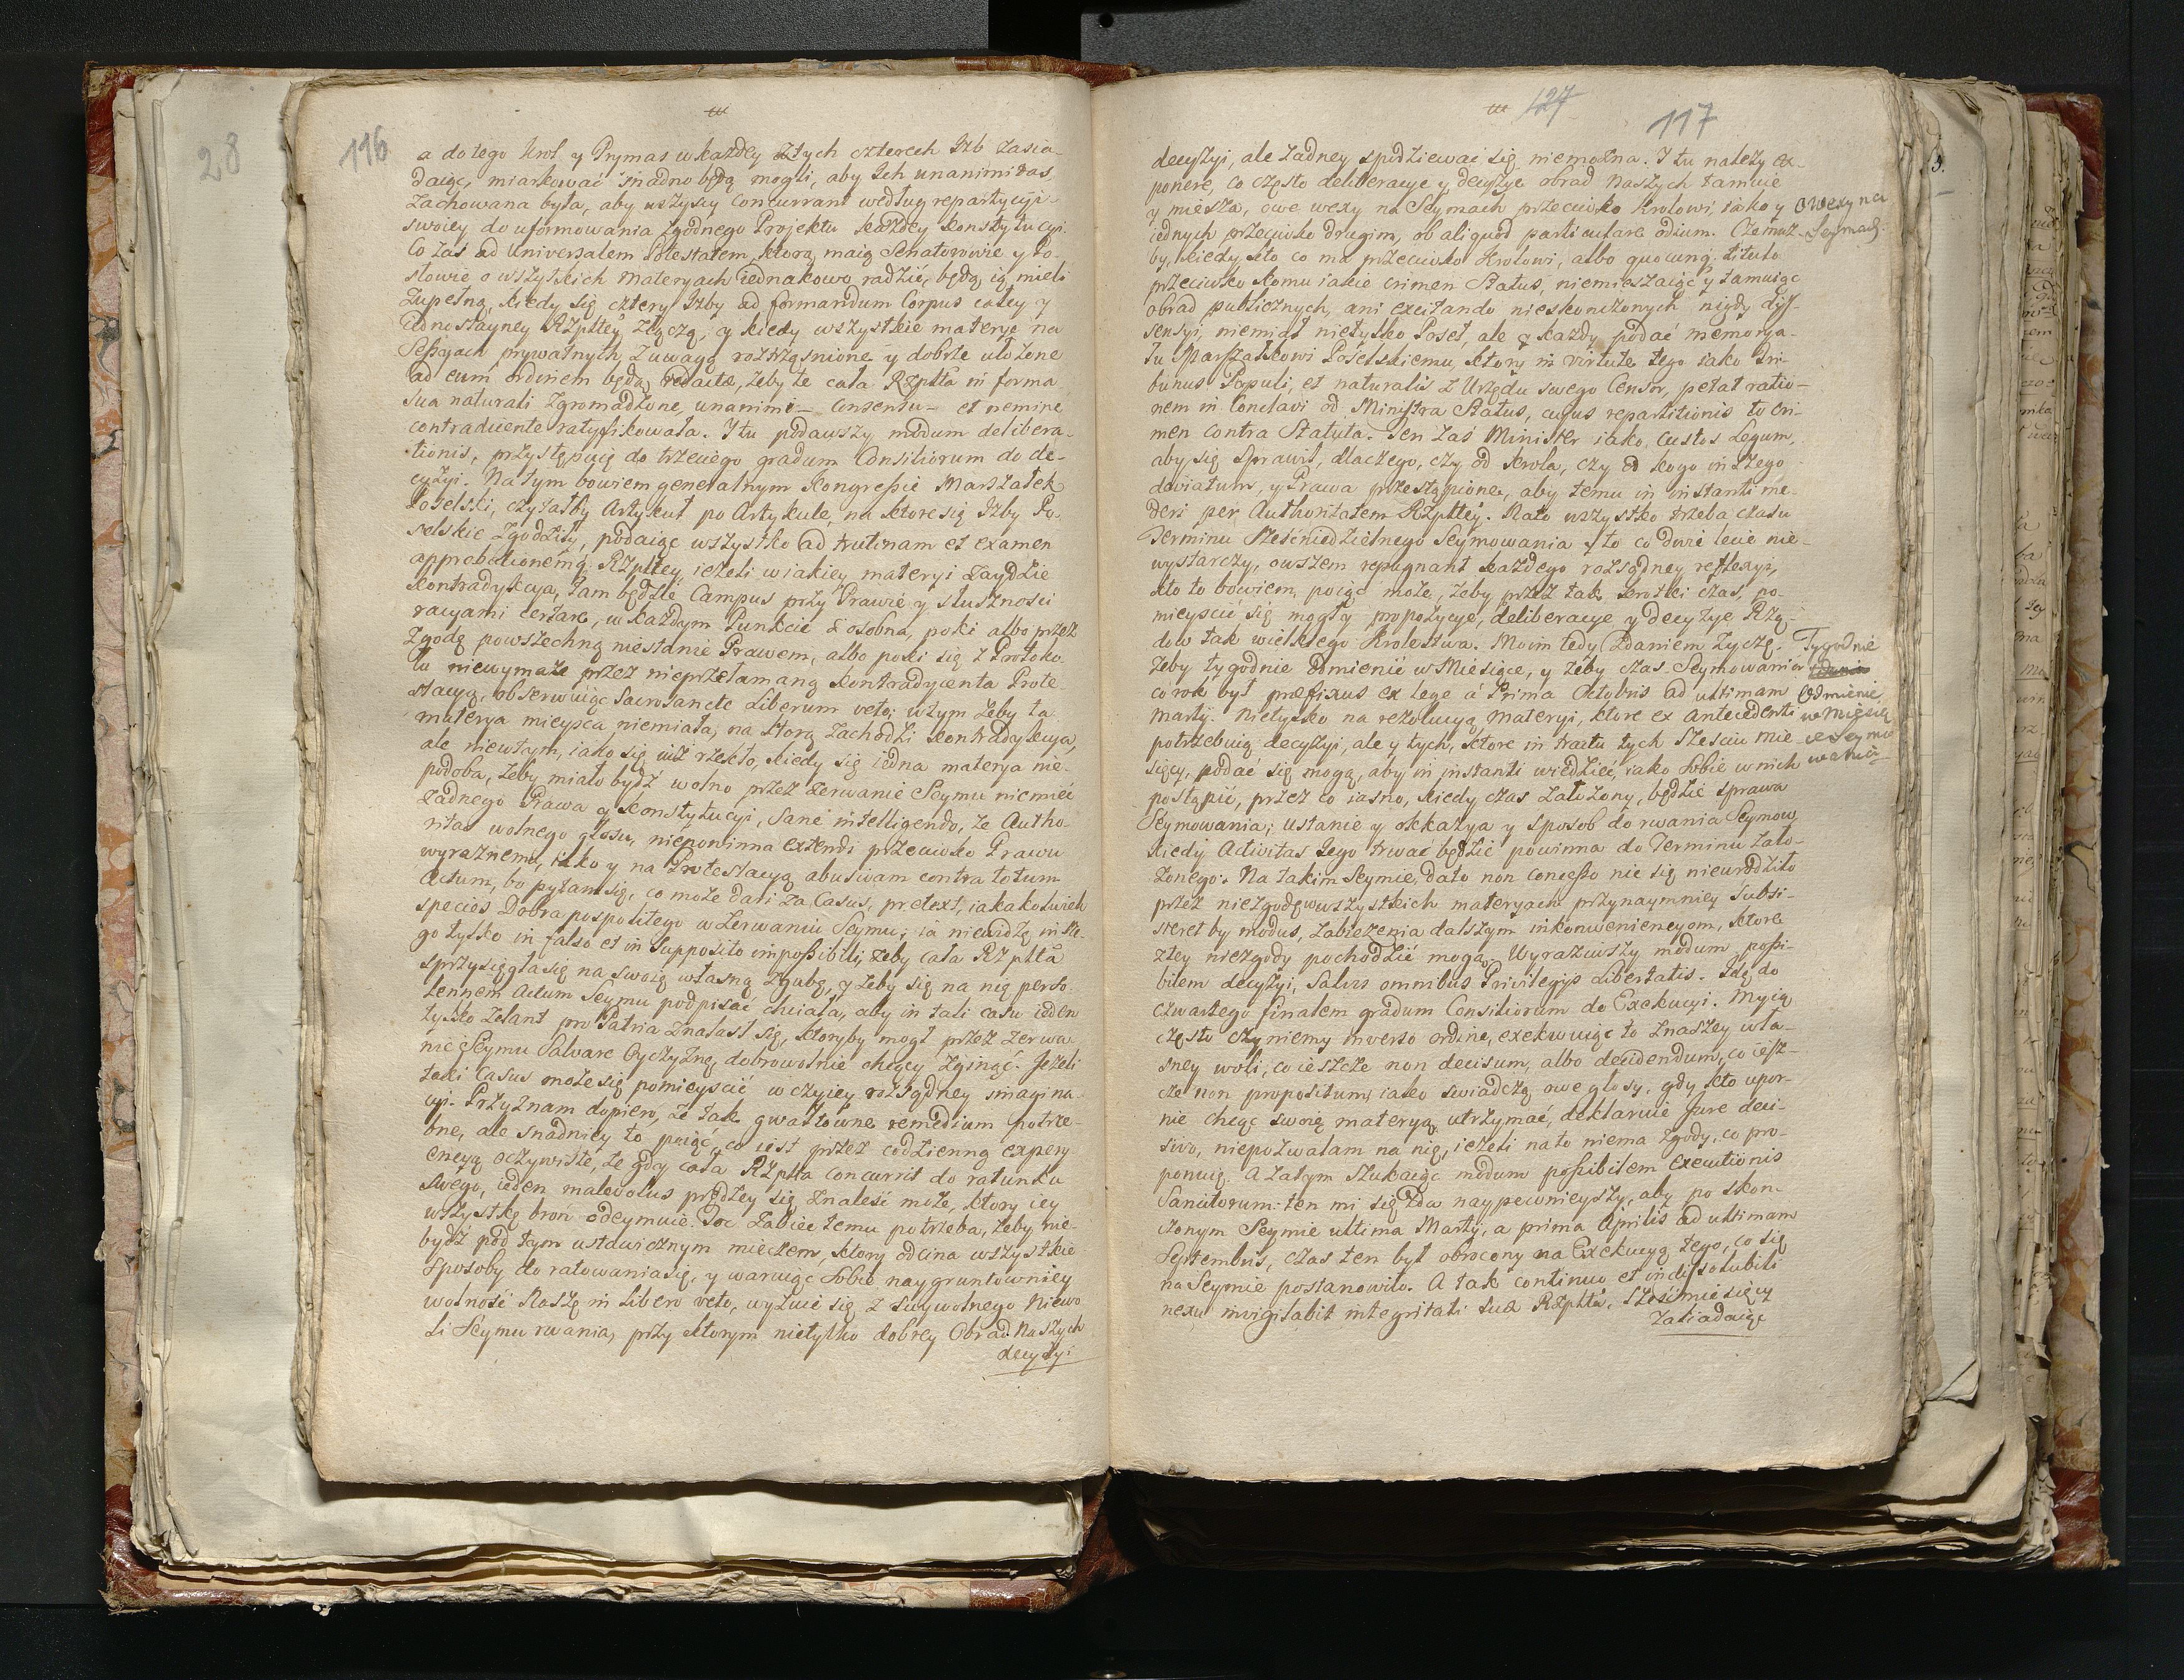 28
116
a do tego Krol y Prymas w każdey z tych czterech Jzb zasia-
daiąc, miarkować snadno będą mogli, aby Ich unanimitas
zachowana była, aby wszyscy concurrant według repartycyi
swoiey do uformowania zgodnego Projektu każdey Konstytucyi.
Co zas ad Universalem Potestatem, ktorą maią Senatorowie y Po-
słowie o wszystkich materyach iednakowo radzić, będą ią mieli
zupełną, kiedy się cztery Jzby ad formandum Corpus całey y
iednostayney Rzpltey złączą, y kiedy wszystkie materye na
Sessyach prywatnych z uwagą roztrząsnione y dobrze ułożone
ad eum ordinem będą redactæ, żeby te cała Rzplta in forma
sua naturali zgromadzone, unanimi consensu et nemine
contradicente ratyfikowała. I tu podawszy modum delibera-
tionis, przystępuię do trzeciego gradum Consiliorum do de-
cyzyi. Na tym bowiem generalnym Kongressie Marszałek
Poselski, czytałby Artykuł po Artykule, na ktore się Jzby Po-
selskie zgodziły, podaiąc wszystko ad trutinam et examen
approbationemq. Rzpltey ieżeli w iakiey materyi zaydzie
kontradykcya, tam będzie Campus przy Prawie y słusznosci
racyami certare, w każdym Punkcie z osobna, poki albo przez
zgodę powszechną niestanie Prawem, albo poki się z Protoko-
łu niewymaże przez nieprzełamaną kontradycenta Prote-
stacyą, obserwuiąc Sacrosancte Liberum veto; w tym żeby ta
materya mieysca niemiała, na ktorą zachodzi kontradykcya,
ale niewtym, iako się iuż rzekło, kiedy się iedna materya nie-
podoba, żeby miało bydź wolno przez zerwanie Seymu niemieć
żadnego Prawa y Konstytucyi, Sane intelligendo, że Autho-
ritas wolnego głosu, niepowinna extendi przeciwko Prawu
wyraźnemu, iako y na Protestacyą abusivam contra totum
Actum, bo pytam się, co może dari za Casus, pretext, iakakolwiek
species Dobra pospolitego w zerwaniu Seymu; ia niewidzę inne-
go tylko in falso et in Supposito impossibili, żeby cała Rzplta
sprzysięgła się na swoię własną zgubę, y żeby się na nię perso-
lennem Actum Seymu podpisać chciała, aby in tali casu ieden
tylko zelant pro Patria znalasł się, ktoryby mogł przez zerwa-
nie Seymu Salvare Oyczyznę, dobrowolnie chcący zginąć. Jeżeli
taki Casus może się pomieyscić w czyiey rozsądney imagina-
cyi. Przyznam dopiero, że tak gwałtowne remedium potrze-
bne, ale snadniey to poiąć, co iest przez codzienną expery-
encyą oczywiste, że gdy cała Rzplta concurrit do ratunku
swego, ieden malevolus prędzey się znalesć może, ktory iey
wszystkę broń odeymuie. Toć zabiec temu potrzeba, żeby nie-
bydź pod tym ustawicznym mieczem, ktory odcina wszystkie
sposoby do ratowania się, y waruiąc sobie naygruntowniey
wolność Naszę in Libero veto, wyzuć się z swywolnego Niewo-
li Seymu rwania, przy ktorym nietylko dobrey Obrad Naszych
decyzyi
127
117
decyzyi, ale żadney spodziewać się niemożna. I tu należy ex-
ponere, co często deliberacye y decyzye obrad Naszych tamuie
y miesza, owe wexy na Seymach przeciwko Krolowi, iako y
iednych przeciwko drugim, ob aliquod particulare odium. Czemuż-
by, kiedy kto co ma przeciwko Krolowi, albo quocunq. titulo
przeciwko komu iakie crimen Status, niemieszaiąc y tamuiąc
obrad publicznych, ani excitando nieskonczonych nigdy dyf-
fensyi, niemiał nietylko Poseł, ale y każdy podać memorya-
łu Marszałkowi Poselskiemu, ktory in virtute tego iako Tri-
bunus Populi, et naturalis z Urzędu swego Censor, petat ratio-
nem in Conclavi od Ministra Status, cujus repartitionis to cri-
men contra Statuta. Ten zaś Minister iako Custos Legum,
aby się sprawił, dlaczego, czy od Krola, czy od kogo inszego
deviatum, y Prawa przestąpione, aby temu in instanti me-
deri per Authoritatem Rzpltey. Na to wszystko trzeba czasu
Terminu sześćniedzielnego Seymowania y to co dwie lecie nie-
wystarczy, owszem repugnant każdego rozsądney reflexyi,
kto to bowiem poiąć może, żeby przez tak krotki czas, po-
mieyscić się mogły propozycye, deliberacye y decyzye Rzą-
dow tak wielkiego Krolestwa. Moim tedy zdaniem życzę,
żeby tygodnie odmienić w Miesiące, y żeby czas Seymowania
co rok był præfixus ex lege à Prima Octobris ad ultimam
Martij. Nietylko na rezolucyą materyi, ktore ex antecedenti
potrzebuią decyzyi, ale y tych, ktore in tractu tych szesciu mie-
sięcy, podać się mogą, aby in instanti wiedzieć, iako sobie w nich
postąpić, przez co iasno, kiedy czas założony, będzie sprawa
Seymowania; ustanie y okkazya y sposob do rwania Seymow
kiedy Activitas iego trwać będzie powinna do Terminu zało-
żonego. Na takim Seymie, dato non concesso nic się nieurodziło
przez niezgodę w wszystkich materyach przynaymniey Subsi-
steret by modus, zabieżenia dalszym inkonweniencyom, ktore
z tey niezgody pochodzić mogą. Wyraziwszy modum possi-
bilem decyzyi, Salvis omnibus Privilegijs Libertatis. Idę do
czwartego finalem gradum Consiliorum do Exekucyi. My ią
często czyniemy inverso ordine, exekwuiąc to z naszey wła-
sney woli, co ieszcze non decisum, albo decidendum, co iesz-
cze non propositum, iako swiadczą owe głosy, gdy kto upor-
nie chcąc swoię materyą utrzymać, deklaruie Jure deci-
sivo, niepozwalam na nię, ieżeli na to niema zgody, co pro-
ponuię. A zatym szukaiąc modum possibilem executionis
Sancitorum: ten mi się zda naypewnieyszy, aby po skon-
czonym Seymie ultima Martij, a prima Aprilis ad ultimam
Septembris, czas ten był obrocony na Exekucyą tego, co się
na Seymie postanowiło. A tak continuo et indissolubili
nexu invigilabit integritati suæ Rzplta, sześć miesięcy
zasiadaiąc
O wexy na
Seymach
Tygodnie
odmienić
w Miesią
ce Seymo
wania